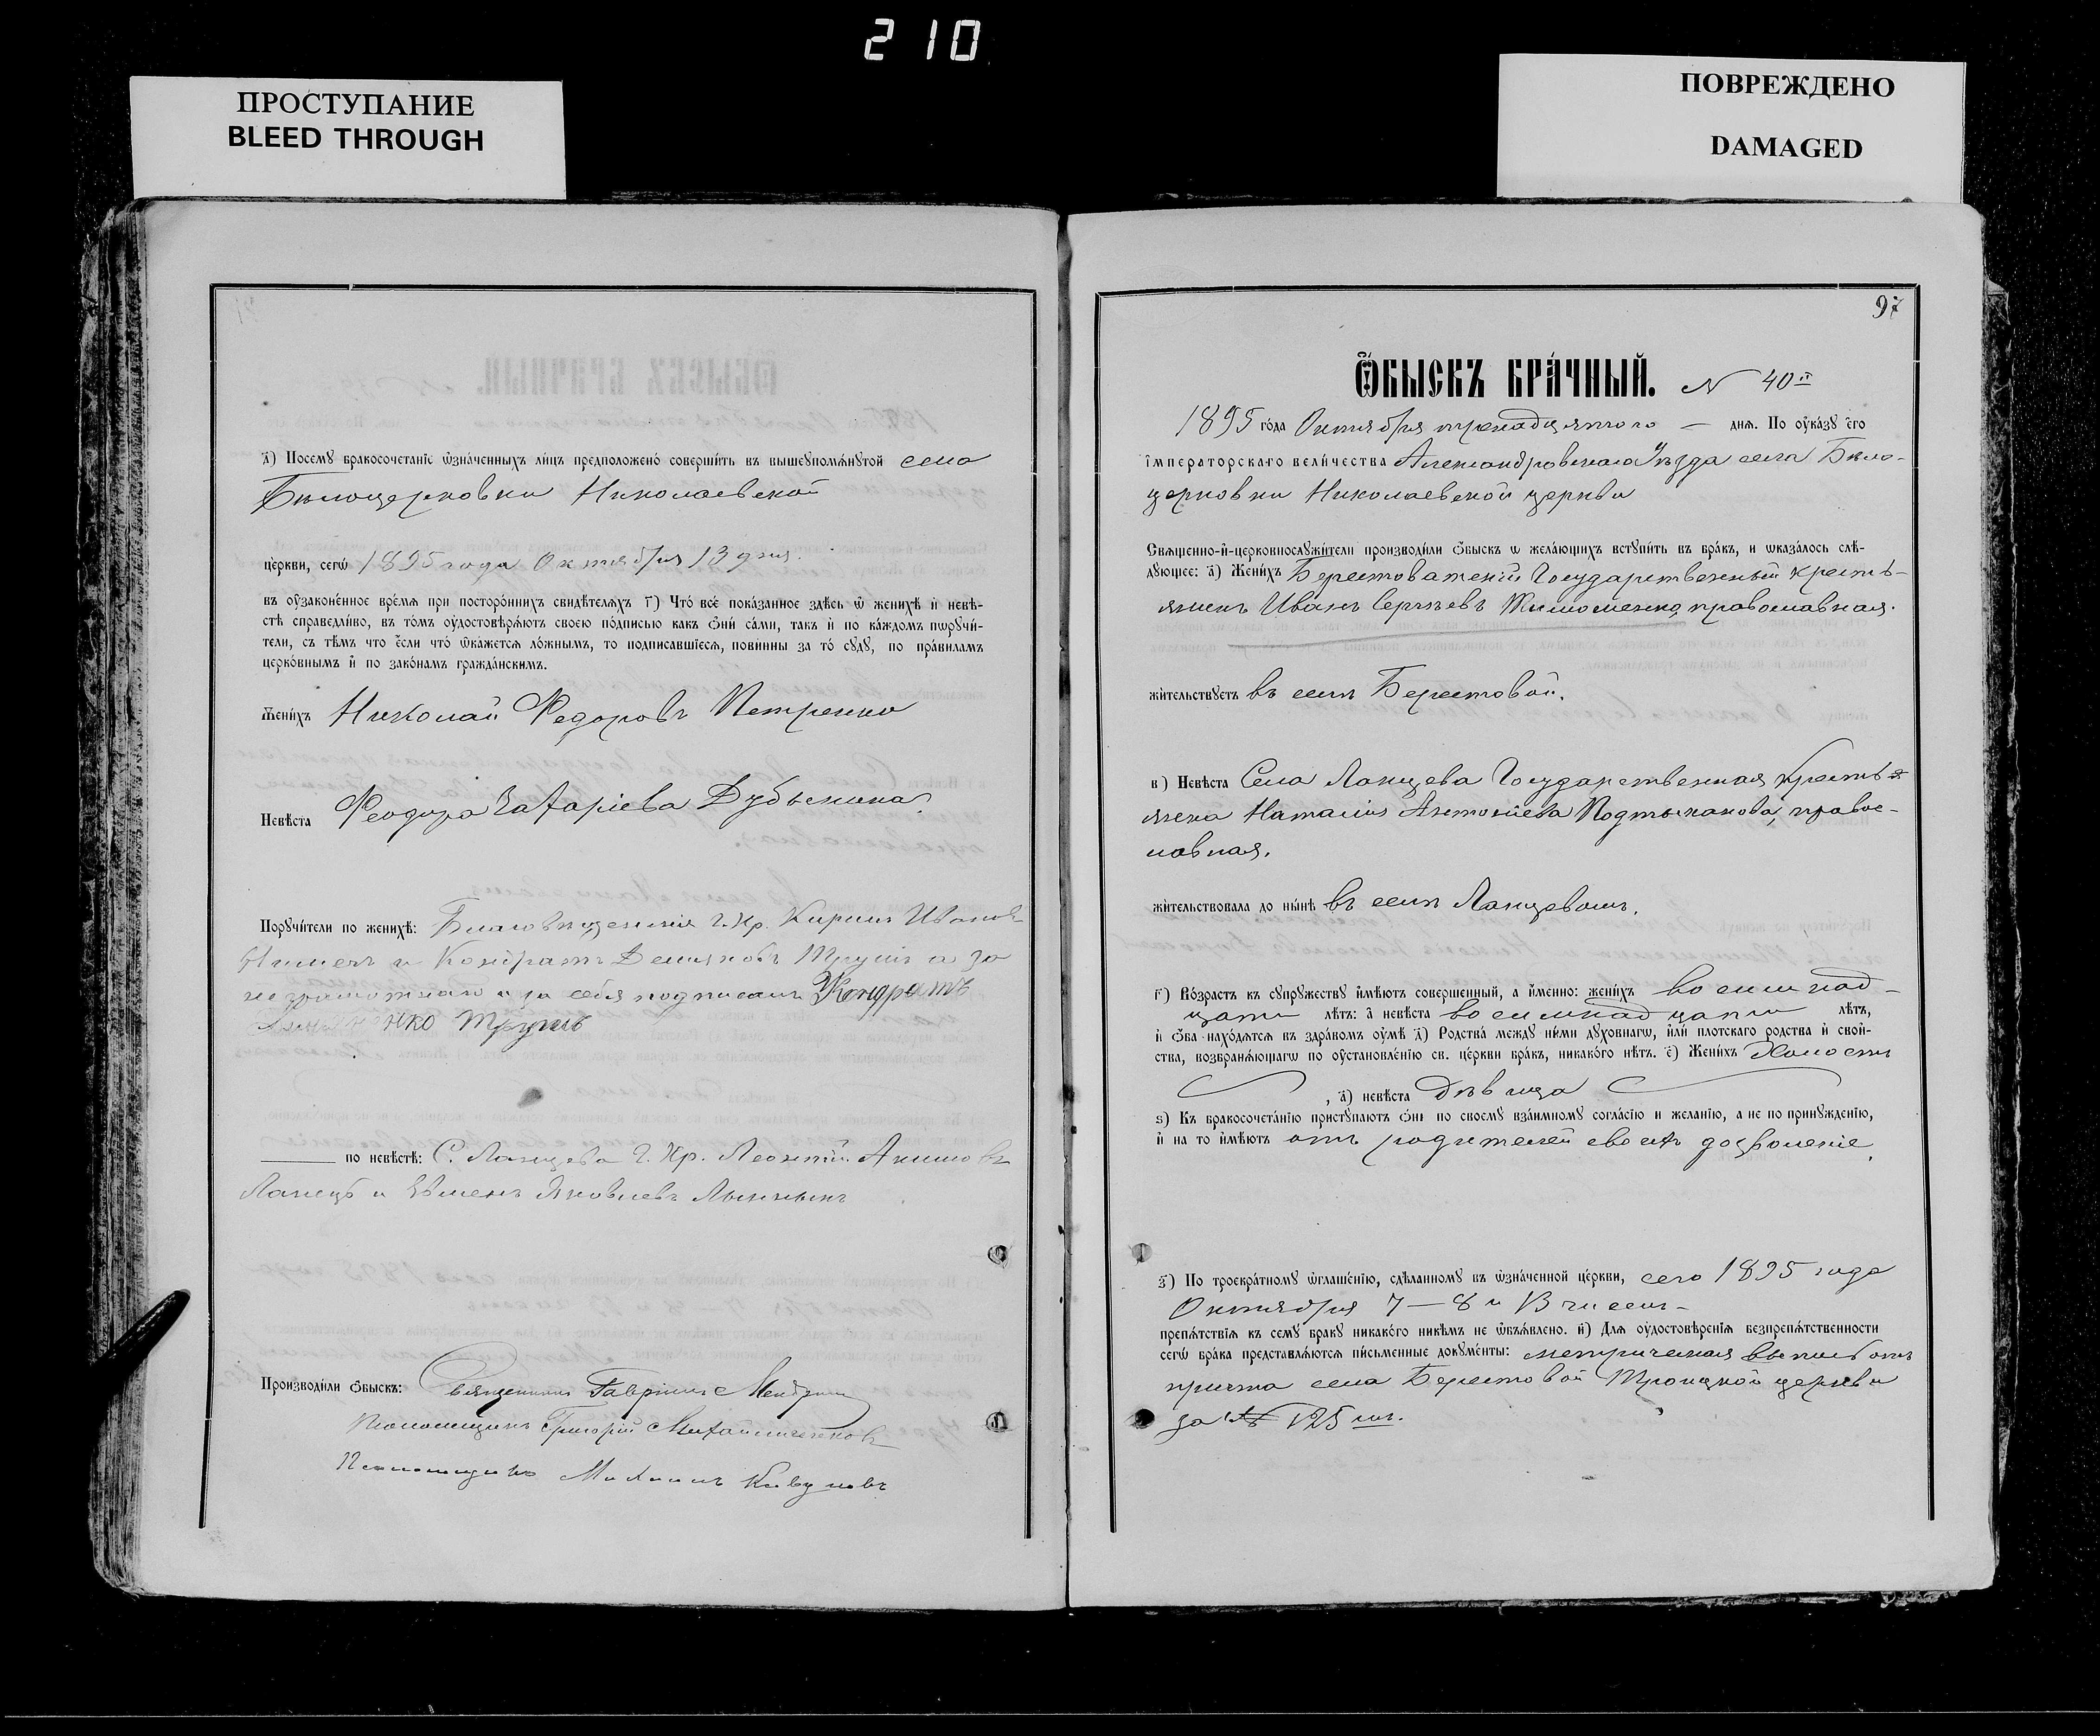 210
ПРОСТУПАНИЕ
BLEED THROUGH
ПОВРЕЖДЕНО
DAMAGED
з҃) Посемꙋ бракосочетанїе ѡзначенныхъ лицъ предположено совершить въ вышеꙋпомѧнꙋтой села
Бѣлоцерковки Николаевской
церкви, сегѡ 1895 года Октября 13 дня.
въ оузаконенное времѧ при постороннихъ свидѣтелѧхъ г҃) Что все показанное здѣсь ѿ женихѣ и невѣ-
стѣ справедливо, въ томъ оудостовѣрѧютъ своею подписью какъ ѻни сами, такъ и по каждомъ пѡрꙋчи-
тели, съ тѣмъ что если что ѡкажетсѧ ложнымъ, то подписавшїесѧ, повинны за то сꙋдꙋ, по правиламъ
церковнымъ и по законамъ гражданскимъ.
Женихъ Николай Федоровъ Петренко
Невѣста Феодора Захаріева
Порꙋчители по женихѣ: Благовѣщенскія Г. Кр. Кирилъ Ивановъ
и Кондратъ Демьяновъ а за
неграмотнаго и за себя подписалъ Кондратъ
по невѣстѣ: С. Ланцева Г. Кр. Леонтій Акимовъ
Ланецъ и Яковлевъ
Производили ѻбыскъ: Священникъ Гавріилъ
Псаломщикъ Григорій
Псаломщикъ Михаилъ
97
Ѻбыскъ брачный. N 40й
1895 года Октября тринадцятого — днѧ. По оуказꙋ его
императорскаго величества Александровскаго уѣзда села Бѣло-
церковки Николаевской церкви
Свѧщенно-и-церковнослꙋжители производили ѻбыскъ ѡ желающихъ встꙋпить въ бракъ, и ѡказалось слѣ-
дꙋющее: а҃) Женихъ Берестоватскій Государственный кресть-
янинъ Иванъ Сергѣевъ Тимошенко, православная.
жительствꙋетъ въ селѣ Берестовой.
в҃) Невѣста Села Ланцева Государственная Кресть-
янка Наталія Антоніева Подтыканова, правос-
лавная.
жительствовала до нынѣ въ селѣ Ланцевомъ.
г҃) Возрастъ къ сꙋпрꙋжествꙋ имѣютъ совершенный, а именно: женихъ восемнад-
цати лѣтъ: а невѣста восемнадцати лѣтъ,
и ѻба находѧтсѧ въ здравомъ оумѣ д҃) Родства междꙋ ними дꙋховнагѡ, или плотскаго родства и свой-
ства, возбранѧющагѡ по оустановленїю св. церкви бракъ, никакого нѣтъ. е҃) Женихъ Холостъ
, а҃) невѣста Дѣвица
ѕ҃) Къ бракосочетанїю пристꙋпаютъ ѻни по своемꙋ взаимномꙋ согласїю и желанїю, а не по принꙋжденїю,
и на то имѣютъ отъ родителей своихъ дозволеніе.
з҃) По троекратномꙋ ѡглашенїю, сдѣланномꙋ въ ѡзначенной церкви, сего 1895 года
Октября 7 — 8 и 13 числъ
препѧтствїѧ къ семꙋ бракꙋ никакого никѣмъ не ѡбъѧвлено. и҃) Длѧ оудостовѣренїѧ безпрепѧтственности
сегѡ брака представлѧютсѧ письменные докꙋменты: метрическая выпись отъ
причта села Берестовой Троицкой церкви
за № 125 мъ.